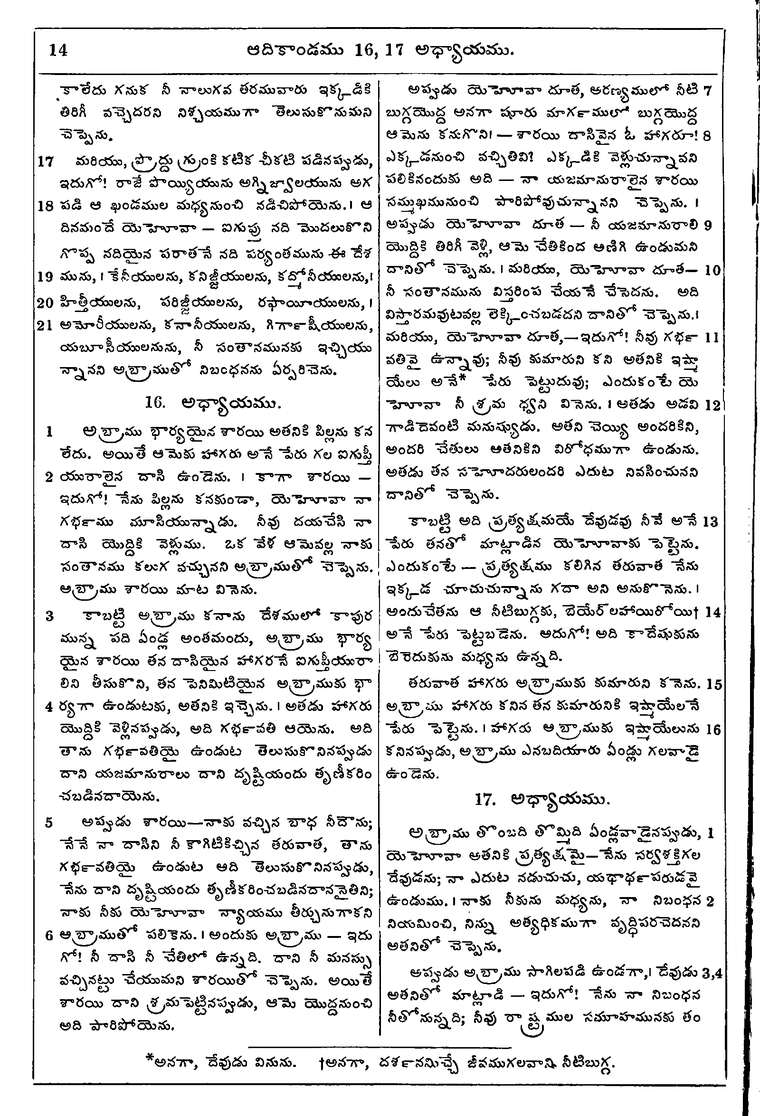 14 ఆదికాండము 16, 17 అధ్యాయము.
కాలేదు గనుక నీ నాలుగవ తరమువారు ఇక్కడికి
తిరిగీ వచ్చెదరని నిశ్చయముగా తెలుసుకొనుమని
చెప్పెను.
17 మరియు, ప్రొద్దు గ్రుంకి కటిక చీకటి పడినప్పుడు,
ఇదుగో! రాజే పొయ్యియును అగ్నిజ్వాలయును అగ
18 పడి ఆ ఖండముల మధ్యనుంచి నడిచిపోయెను.। ఆ
దినమందే యెహోవా — ఐగుప్తు నది మొదలుకొని
గొప్ప నదియైన పరాతనే నది పర్యంతమును ఈ దేశ
19 మును, । కేనీయులను, కనిజ్జీయులను, కద్మోనీయులను,।
20 హిత్తీయులను, పరిజ్జీయులను, రఫాయీయులను, ।
21 అమోరీయులను, కనానీయులను, గిర్గాషీయులను,
యబూసీయులనును, నీ సంతానమునకు ఇచ్చియు
న్నానని అబ్రాముతో నిబంధనను ఏర్పరిచెను.
16. అధ్యాయము.
1 అబ్రాము భార్యయైన శారయి అతనికి పిల్లను కన
లేదు. అయితే ఆమెకు హాగరు అనే పేరు గల ఐగుప్తీ
2 యురాలైన దాసి ఉండెను. । కాగా శారయి —
ఇదుగో! నేను పిల్లను కనకుండా, యెహోవా నా
గర్భము మూసియున్నాడు. నీవు దయచేసి నా
దాసి యొద్దికి వెళ్లుము. ఒక వేళ ఆమెవల్ల నాకు
సంతానము కలుగ వచ్చునని అబ్రాముతో చెప్పెను.
అబ్రాము శారయి మాట వినెను.
3 కాబట్టి అబ్రాము కనాను దేశములో కాపుర
మున్న పది ఏండ్ల అంతమందు, అబ్రాము భార్య
యైన శారయి తన దాసియైన హాగరనే ఐగుప్తీయురా
లిని తీసుకొని, తన పెనిమిటియైన అబ్రాముకు భా
4 ర్యగా ఉండుటకు, అతనికి ఇచ్చెను. । అతడు హాగరు
యొద్దికి వెళ్లినప్పుడు, అది గర్భవతి ఆయెను. అది
తాను గర్భవతియై ఉండుట తెలుసుకొనినప్పుడు
దాని యజమానురాలు దాని దృష్టియందు తృణీకరిం
చబడినదాయెను.
5 అప్పుడు శారయి—నాకు వచ్చిన బాధ నీదొను;
నేనే నా దాసిని నీ కాగిటికిచ్చిన తరువాత, తాను
గర్భవతియై ఉండుట ఆది తెలుసుకొనినప్పుడు,
నేను దాని దృష్టియందు తృణీకరించబడినదాననైతిని;
నాకు నీకు యెహోవా న్యాయము తీర్చునుగాకని
6 ఆబ్రాముతో పలికెను. । అందుకు అబ్రాము — ఇదు
గో! నీ దాసి నీ చేతిలో ఉన్నది. దాని నీ మనస్సు
వచ్చినట్టు చేయుమని శారయితో చెప్పెను. అయితే
శారయి దాని శ్రమపెట్టినప్పుడు, ఆమె యొద్దనుంచి
అది పారిపోయెను.
అప్పుడు యెహోవా దూత, అరణ్యములో నీటి 7
బుగ్గయొద్ద అనగా షూరు మార్గములో బుగ్గయొద్ద
ఆమెను కనుగొని। — శారయి దాసివైన ఓ హాగరూ! 8
ఎక్కడనుంచి వచ్చితివి? ఎక్కడికి వెళ్లుచున్నావని
పలికినందుకు అది — నా యజమానురాలైన శారయి
సమ్ముఖమునుంచి పారిపోవుచున్నానని చెప్పెను. ।
అప్పుడు యెహోవా దూత — నీ యజమానురాలి 9
యొద్దికి తిరిగీ వెళ్లి, ఆమె చేతికింద ఆణిగి ఉండుమని
దానితో చెప్పెను. । మరియు, యెహోవా దూత— 10
నీ సంతానమును విస్తరింప చేయనే చేసెదను. అది
విస్తారమవుటవల్ల లెక్కించబడదని దానితో చెప్పెను.।
మరియు, యెహోవా దూత,—ఇదుగో! నీవు గర్భ 11
వతివై ఉన్నావు; నీవు కుమారుని కని అతనికి ఇష్మా
యేలు అనే* పేరు పెట్టుదువు; ఎందుకంటే యె
హోవా నీ శ్రమ ధ్వని వినెను. । అతడు అడవి 12
గాడిదెవంటి మనుష్యుడు. అతని చెయ్యి అందరికిని,
అందరి చేతులు ఆతనికిని విరోధముగా ఉండును.
అతడు తన సహెూదరులందరి ఎదుట నివసించునని
దానితో చెప్పెను.
కాబట్టి అది ప్రత్యక్షమయే దేవుడవు నీవే అనే 13
పేరు తనతో మాట్లాడిన యెహోవాకు పెట్టెను.
ఎందుకంటే — ప్రత్యక్షము కలిగిన తరువాత నేను
ఇక్కడ చూచుచున్నాను గదా అని అనుకొనెను. ।
అందుచేతను ఆ నీటిబుగ్గకు, బెయేర్‌లహాయిరోయి† 14
అనే పేరు పెట్టబడెను. అదుగో! అది కాదేషుకును
బెరెదుకును మధ్యను ఉన్నది.
తరువాత హాగరు అబ్రాముకు కుమారుని కనెను. 15
అబ్రాము హాగరు కనిన తన కుమారునికి ఇష్మాయేలనే
పేరు పెట్టెను. । హాగరు ఆబ్రాముకు ఇష్మాయేలును 16
కనినప్పుడు, అబ్రాము ఎనబదియారు ఏండ్లు గలవాడై
ఉండెను.
17. అధ్యాయము.
అబ్రాము తొంబది తొమ్మిది ఏండ్లవాడైనప్పుడు, 1
యెహోవా అతనికి ప్రత్యక్షమై—నేను సర్వశక్తిగల
దేవుడను; నా ఎదుట నడుచుచు, యథార్థపరుడవై
ఉండుము. । నాకు నీకును మధ్యను, నా నిబంధన 2
నియమించి, నిన్ను అత్యధికముగా వృద్ధిపరచెదనని
అతనితో చెప్పెను.
అప్పుడు అబ్రాము సాగిలపడి ఉండగా,। దేవుడు 3,4
అతనితో మాట్లాడి — ఇదుగో! నేను నా నిబంధన
నీతోనున్నది; నీవు రాష్ట్రముల సమూహమునకు తం
*అనగా, దేవుడు వినును. †అనగా, దర్శనమిచ్చే జీవముగలవాని నీటిబుగ్గ.